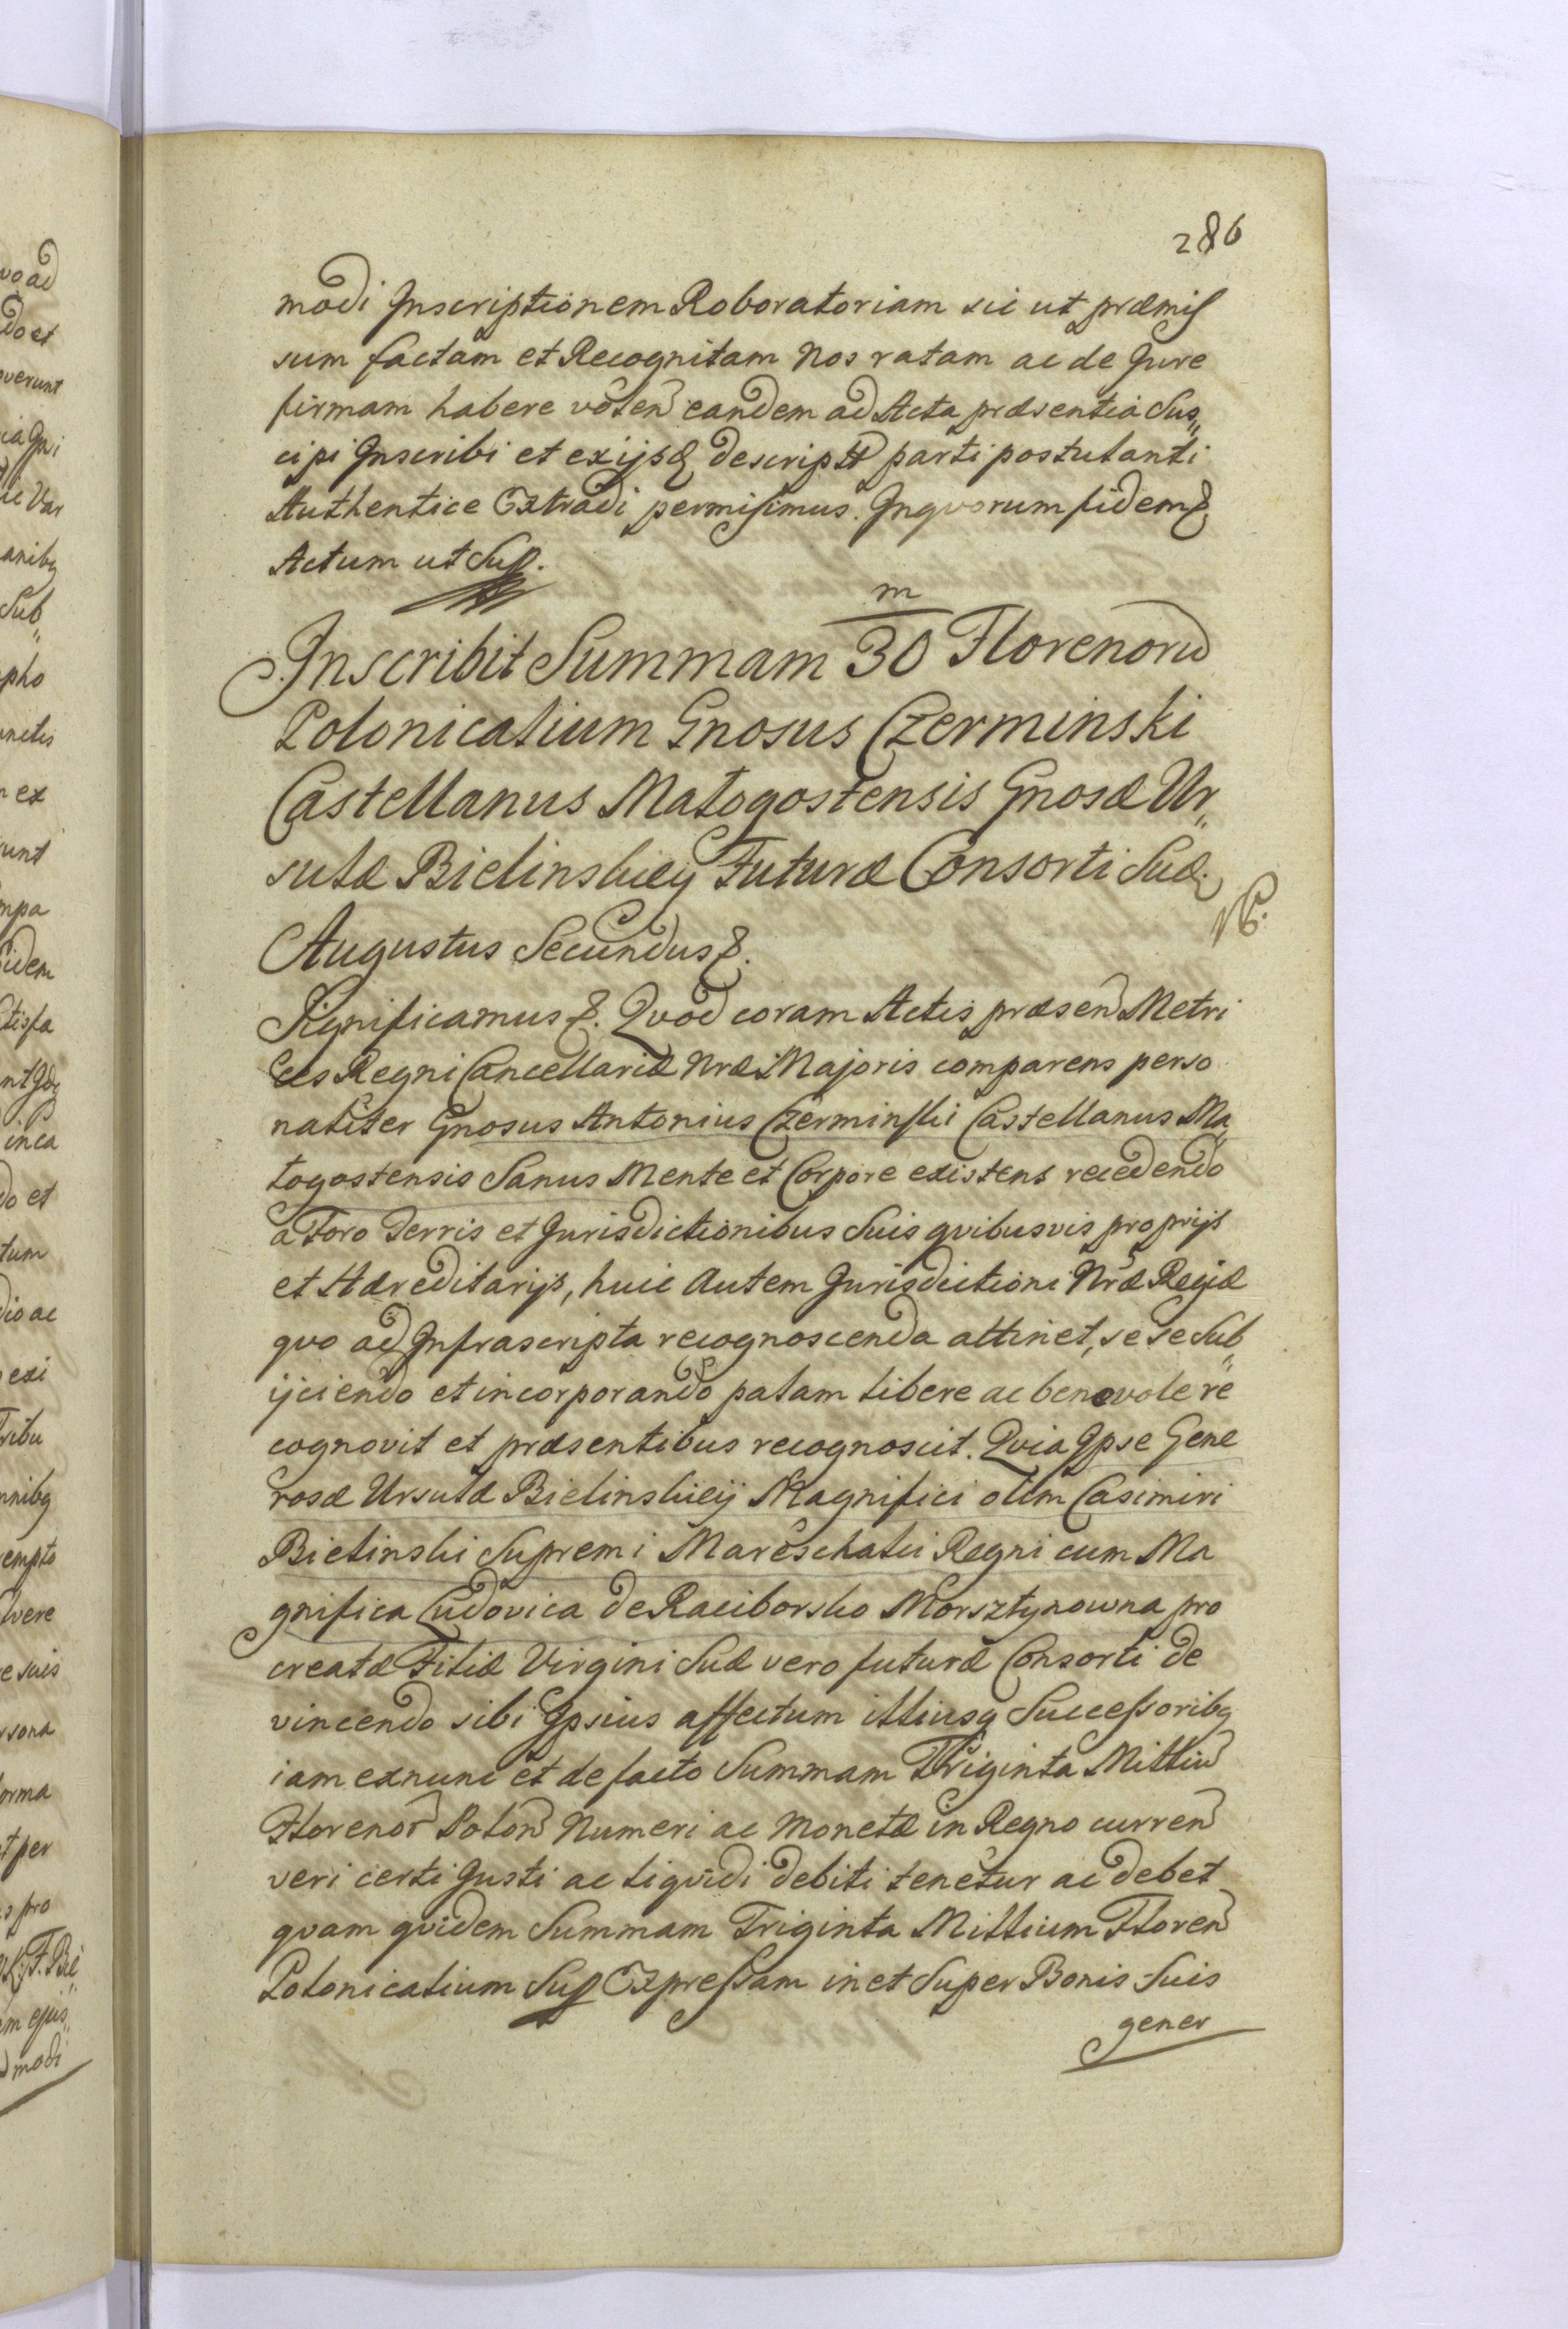 286
modi Inscriptionem Roboratoriam sic ut præmis
sum factam et Recognitam Nos ratam ac de Jure
firmam habere volen eandem ad Acta præsentia Sus„
cipi Inscribi et ex ijsd descript parti postulanti
Authentice Extradi permisimus. In qvorum fidem &.
Actum ut Sup.
m
Inscribit Summam 30 Florenorū
Polonicalium Gnosus Czerminski
Castellanus Małogostensis Gnosæ Ur„
sulæ Bielinskiey Futuræ Consorti Suæ.
NB.
Augustus Secundus &.
Significamus &. Qvod coram Actis præsen Metri
ces Regni Cancellariæ Nræ Majoris comparens perso
naliter Gnosus Antonius Czerminski Castellanus Ma„
łogostensis Sanus Mente et Corpore existens recedendo
a Foro Terris et Jurisdictionibus Suis qvibusvis proprijs
et Hæreditarijs, huic Autem Jurisdictioni Nræ Regiæ
qvo ad Infrascripta recognoscenda attinet, se se Sub„
ijciendo et incorporando palam libere ac benevole re
cognovit et præsentibus recognoscit. Qvia Ipse Gene
rosæ Ursulæ Bielinskieÿ Magnifici olim Casimiri
Bielinski Supremi Mareschalci Regni cum Ma
gnifica Ludovica de Raciborsko Morsztynowna pro
creatæ Filiæ Virgini Suæ vero futuræ Consorti de
vincendo sibi Ipsius affectum illiusq Successoribq
iam exnunc et de facto Summam Triginta Milliū
Florenor Polon Numeri ac Monetæ in Regno curren
veri certi Justi ac liqvidi debiti tenetur ac debet
qvam qvidem Summam Triginta Millium Floren
Polonicalium Sup Expressam in et Super Bonis Suis
gener
vo ad
do et
verunt
anibq
Sub„
pho
ex
unt
mpa
idem
tisfa
inca
do et
tum
dio ac
exi
ribu
nnibq
empto
lvere
e suis
rsona
orma
t per
s pro
m ejus„
modi